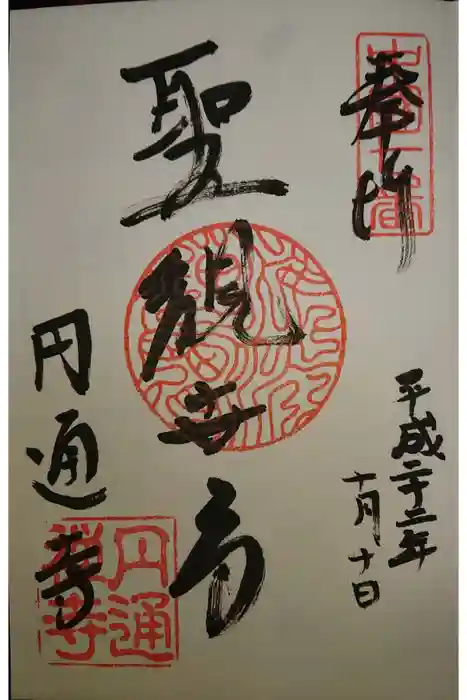 奉拝
平成二十二年
十月十日
聖観世音
円通寺
円通
禅寺